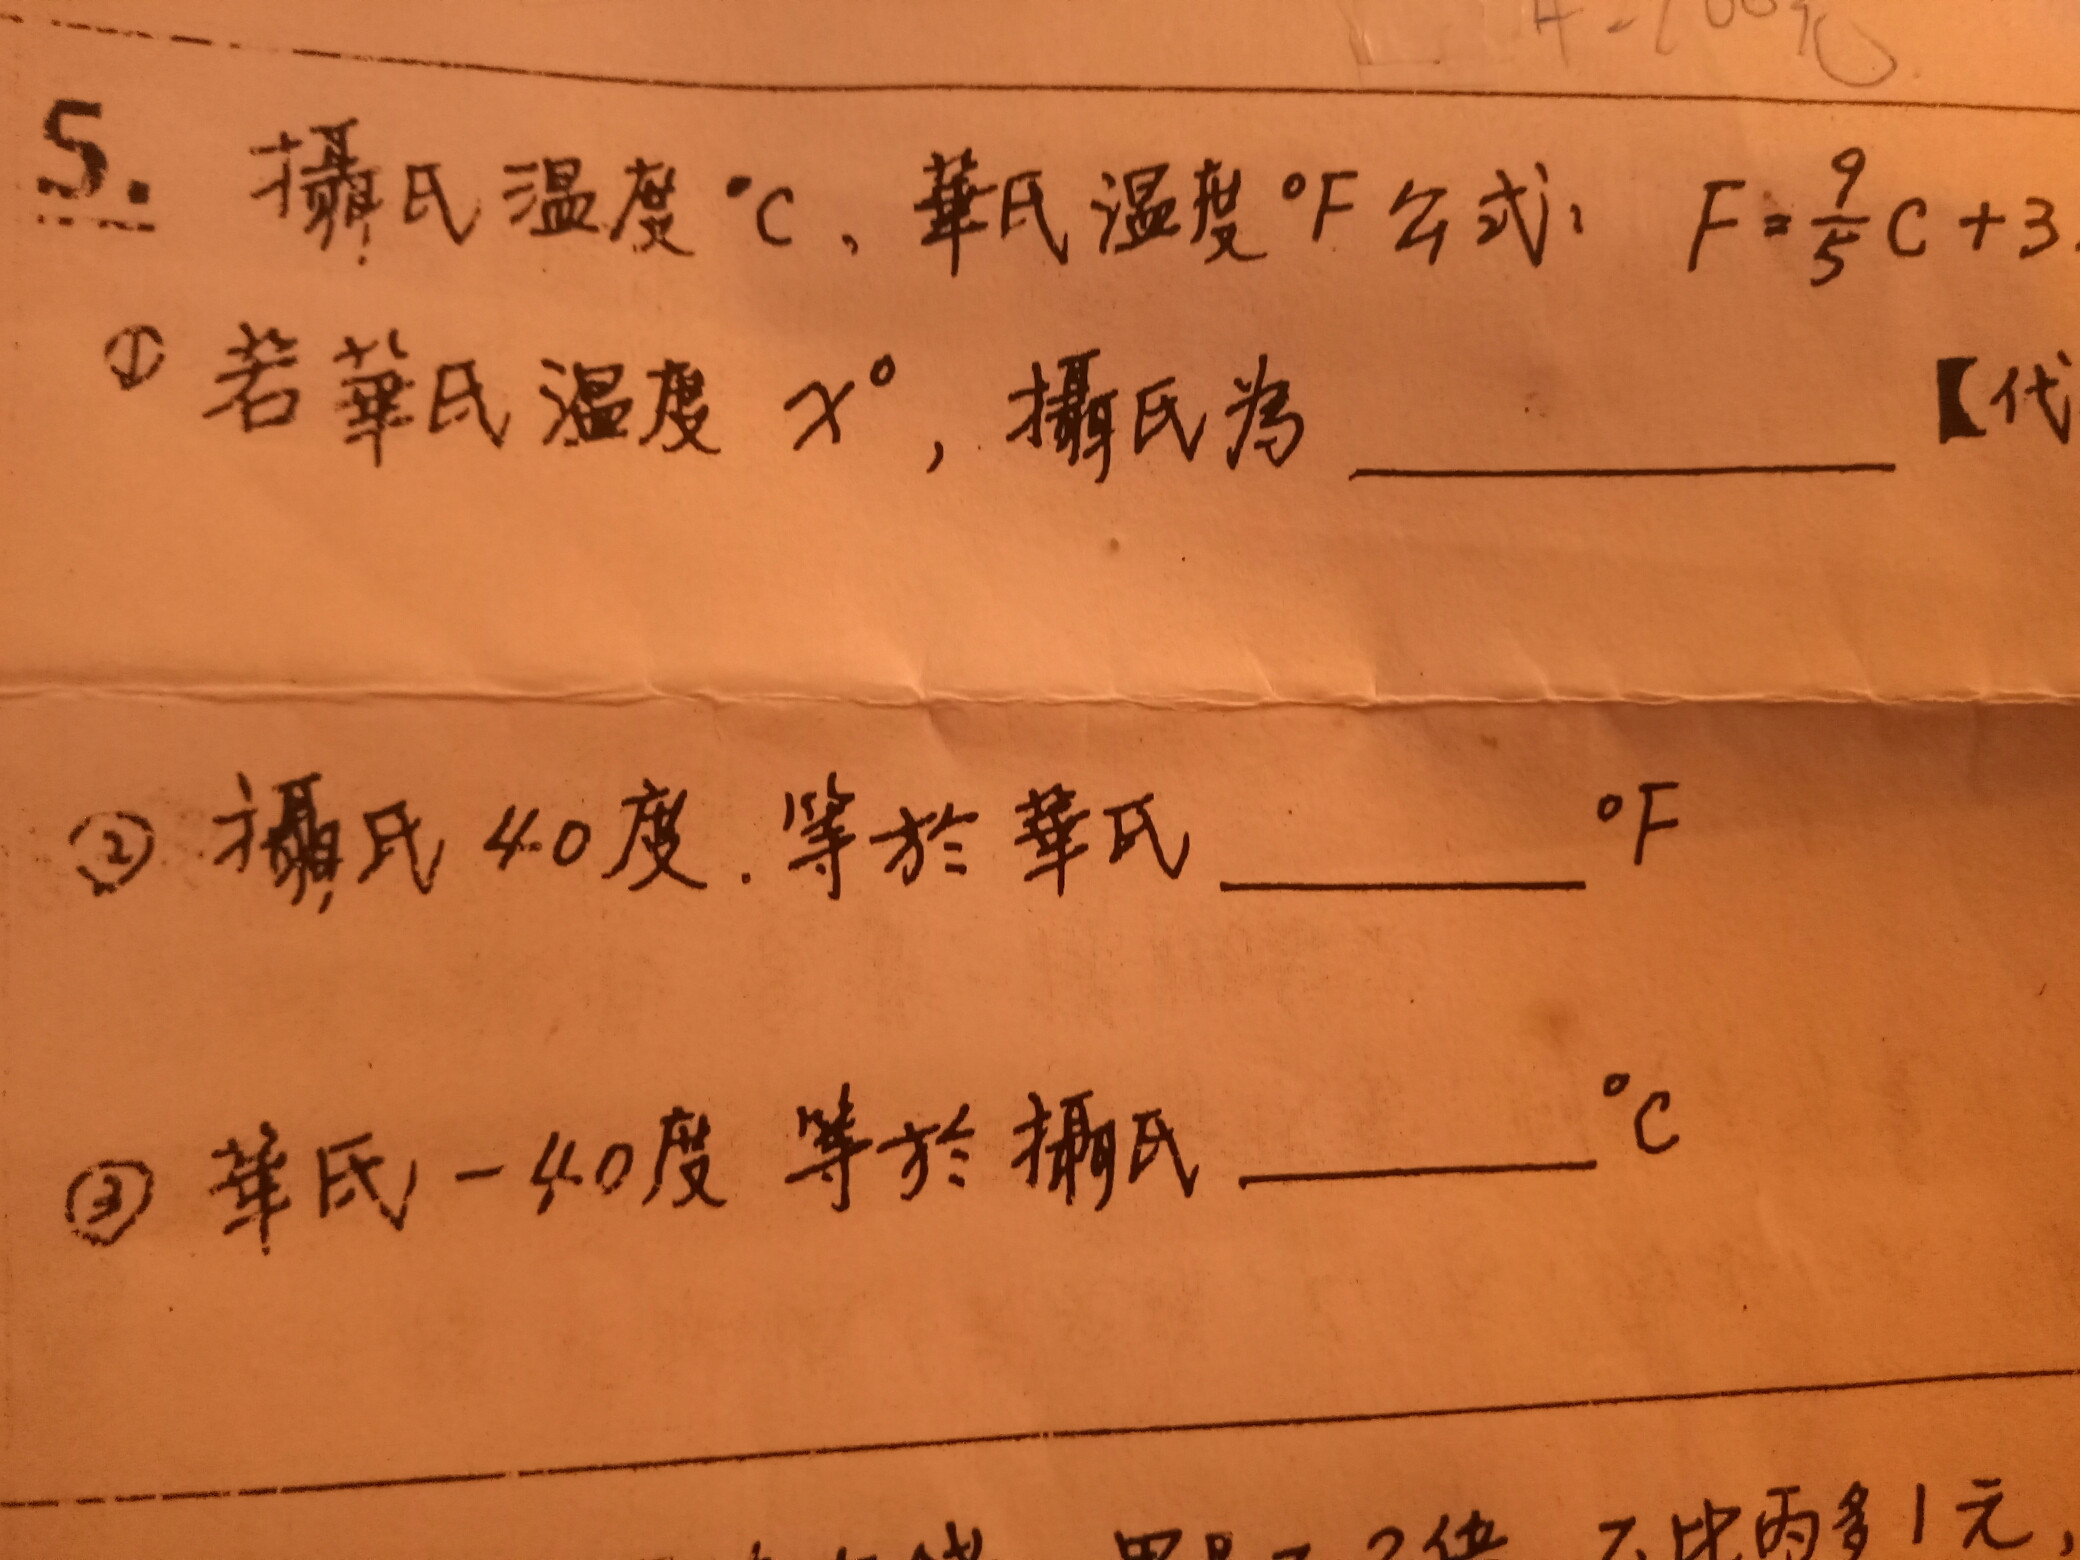 5. 攝氏溫度°C、華氏溫度°F公式: F=9/5C+3
① 若華氏溫度 x°, 攝氏為 ________ 【代
② 攝氏 40度. 等於華氏 ________ °F
③ 華氏-40度 等於攝氏 ________ °C
乙比丙多1元,